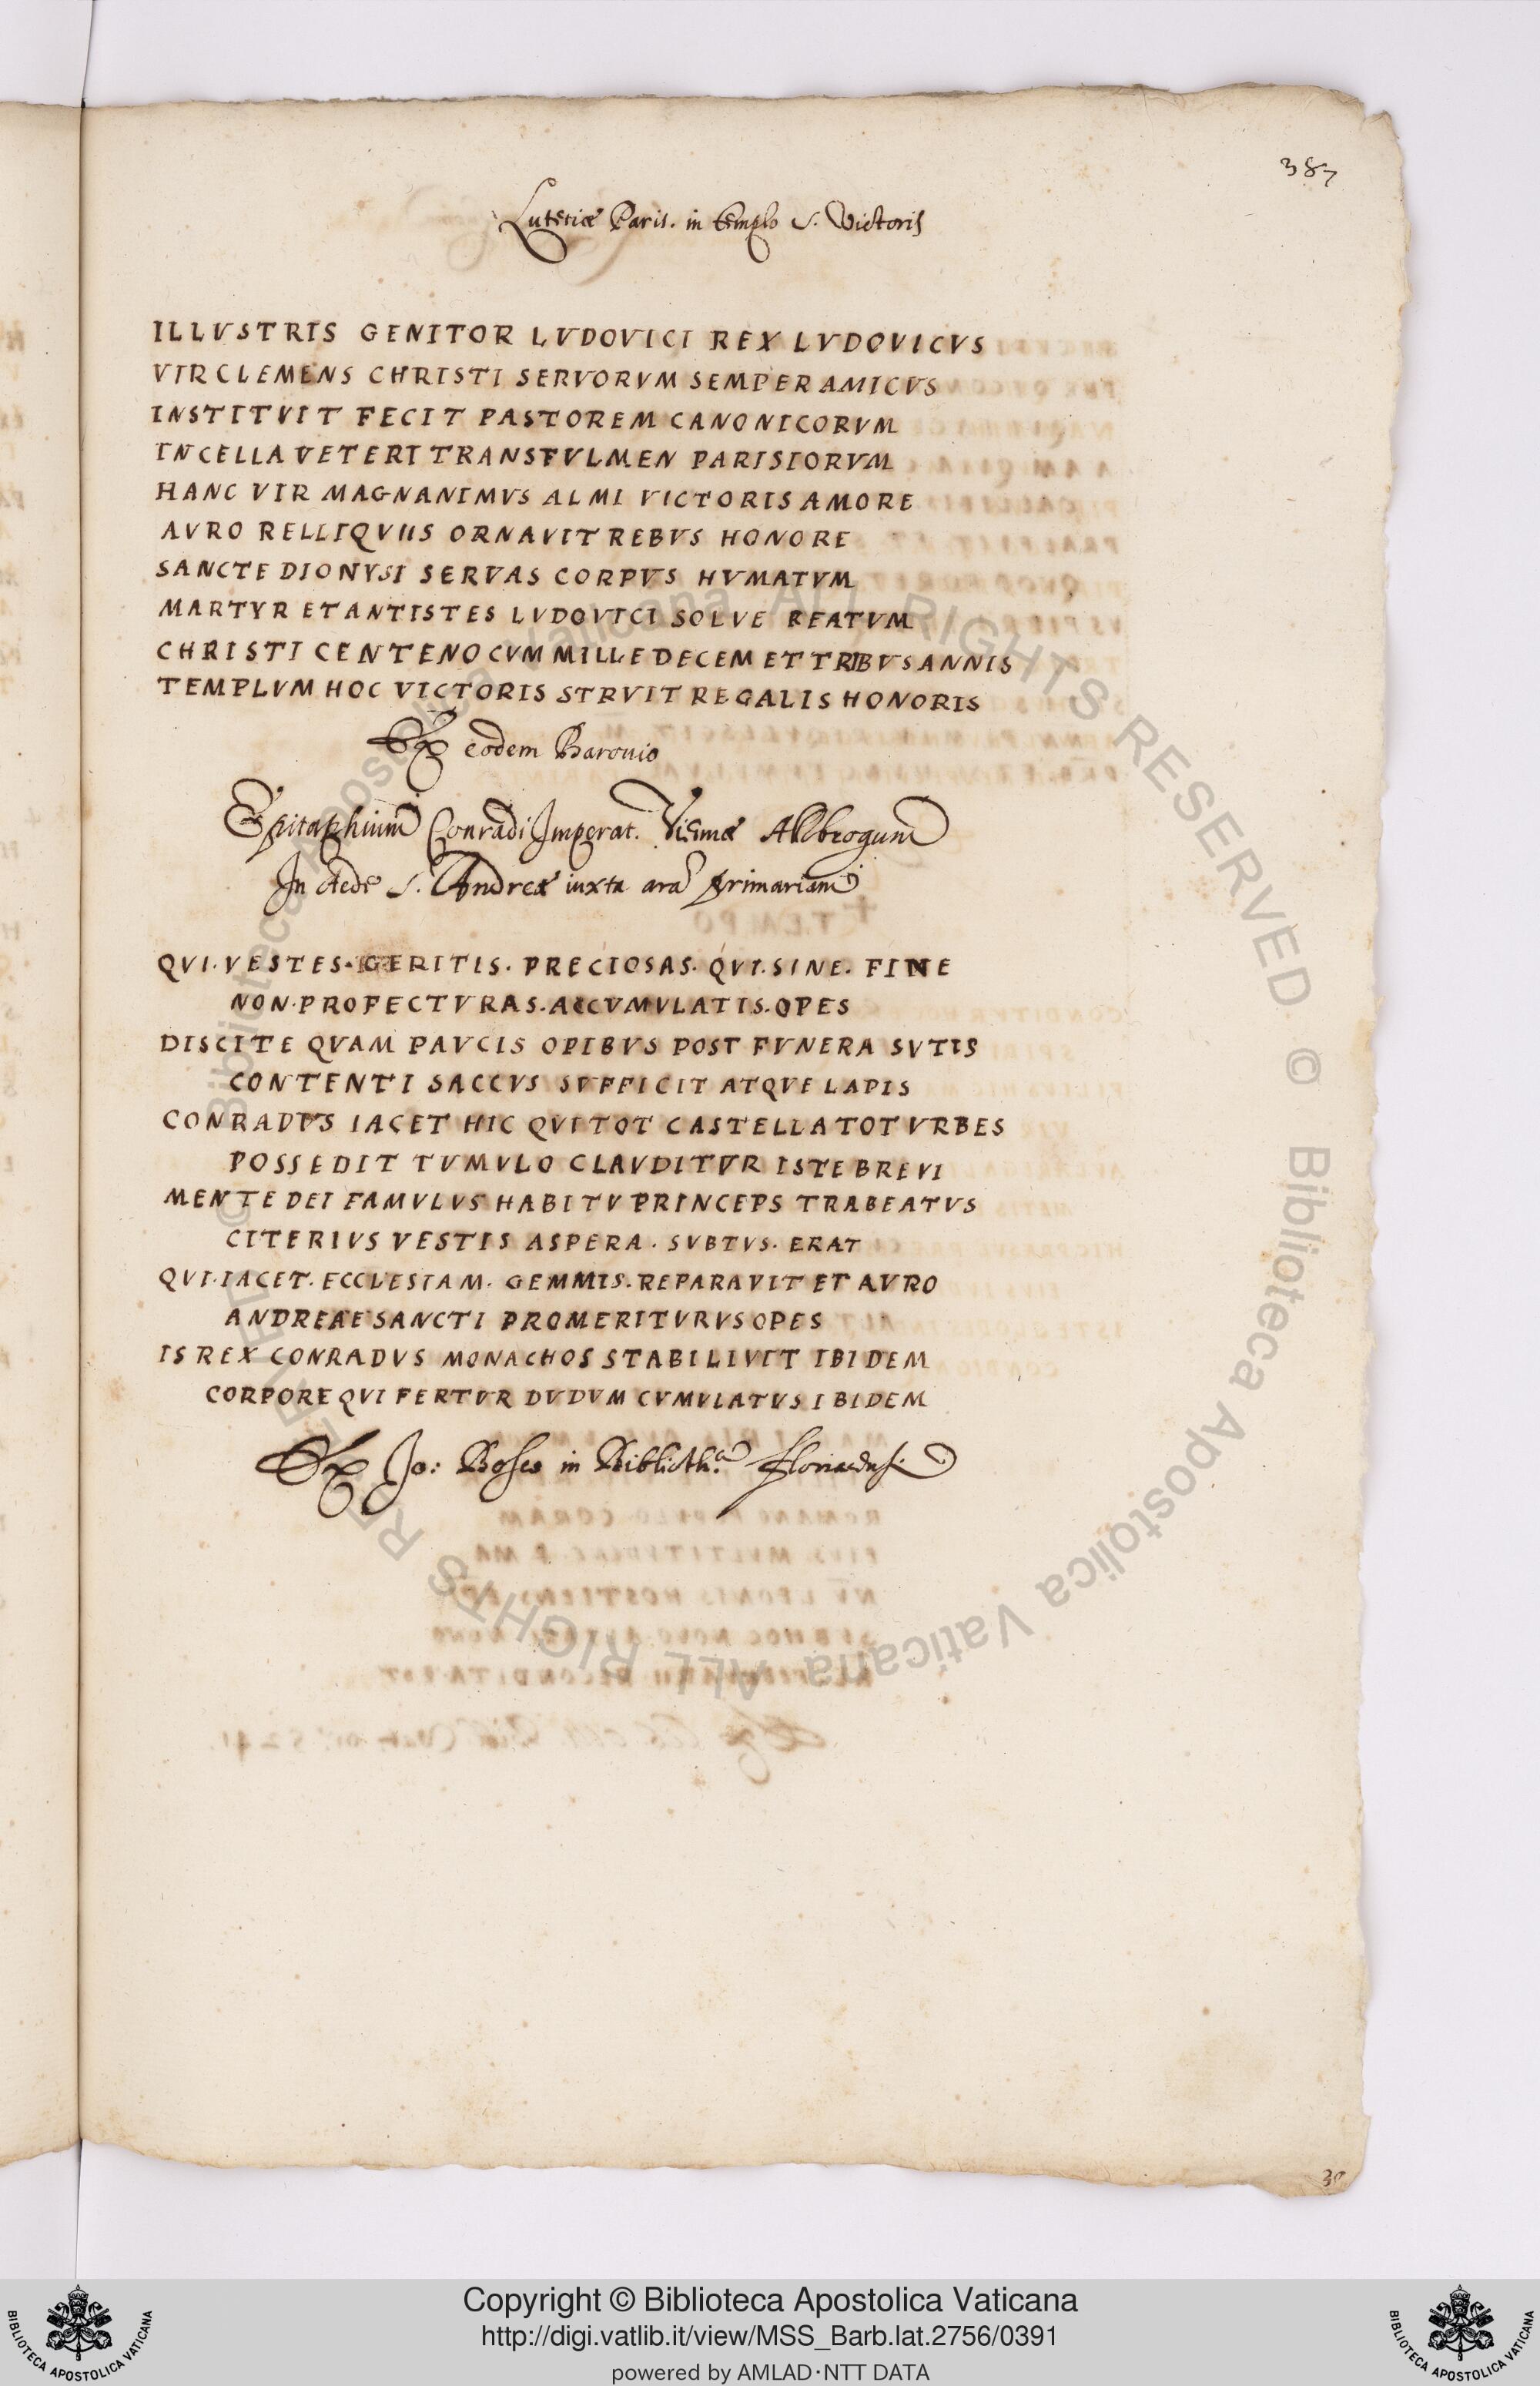 387
Lutetiæ Paris. in templo S. Victoris
ILLVSTRIS GENITOR LVDOVICI REX LVDOVICVS
VIR CLEMENS CHRISTI SERVORVM SEMPER AMICVS
INSTITVIT FECIT PASTOREM CANONICORVM
IN CELLA VETERI TRANS FVLMEN PARISIORVM
HANC VIR MAGNANIMVS ALMI VICTORIS AMORE
AVRO RELLIQVIIS ORNAVIT REBVS HONORE
SANCTE DIONYSI SERVAS CORPVS HVMATVM
MARTYR ET ANTISTES LVDOVICI SOLVE REATVM
CHRISTI CENTENO CVM MILLE DECEM ET TRIBVS ANNIS
TEMPLVM HOC VICTORIS STRVIT REGALIS HONORIS
Ex eodem Baronio
Epitaphium Conradi Imperat. Viennæ Allobrogum
In Aede S. Andreæ iuxta arã primariam
QVI·VESTES·GERITIS·PRECIOSAS·QVI·SINE·FINE
NON·PROFECTVRAS·ACCVMVLATIS·OPES
DISCITE QVAM PAVCIS OPIBVS POST FVNERA SVTIS
CONTENTI SACCVS SVFFICIT ATQVE LAPIS
CONRADVS IACET HIC QVI TOT CASTELLA TOT VRBES
POSSEDIT TVMVLO CLAVDITVR ISTE BREVI
MENTE DEI FAMVLVS HABITV PRINCEPS TRABEATVS
CITERIVS VESTIS ASPERA·SVBTVS·ERAT
QVI·IACET·ECCLESIAM·GEMMIS·REPARAVIT ET AVRO
ANDREAE SANCTI PROMERITVRVS OPES
IS REX CONRADVS MONACHOS STABILIVIT IBIDEM
CORPORE QVI FERTVR DVDVM CVMVLATVS IBIDEM
Ex Jo: Bosco in Biblioth.ª
Copyright © Biblioteca Apostolica Vaticana
http://digi.vatlib.it/view/MSS_Barb.lat.2756/0391
powered by AMLAD·NTT DATA